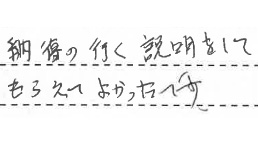 納得の行く説明をして
もらえてよかったです